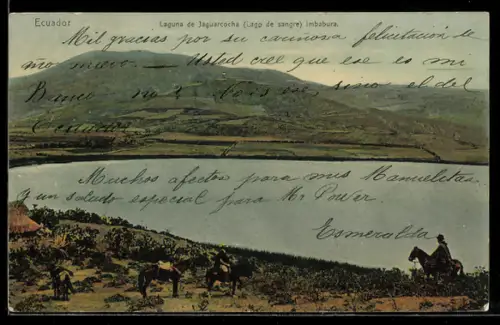 Ecuador
Laguna de Jaguarcocha (Lago de sangre) Imbabura.
Mil gracias por su cariñosa felicitación de
 nuevo. Usted cree que ese es mi
Banco no? es ese, sino el del
Ecuador
Muchos afectos para mis Manuelitas
y un saludo especial para Mr Power.
Esmeralda